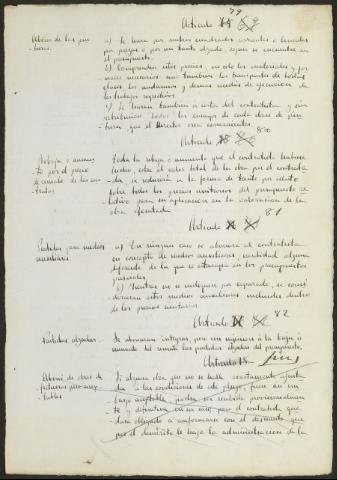 79
Artículo
Abono de las pin-
turas.
a) Se harán por metros cuadrados
por piezas o por un tanto alzado, según se encuentre en
el presupuesto.
b) Comprenden estos precios, no solo los materiales y jor-
nales necesarios sino también los transportes de todas
clases los andamios y demás medios de ejecución de
los trabajos respectivos.
c) Se harán también a costa del contratista y sin
retribución todos los ensayos de cada clase de pin-
tura, que el Director crea convenientes.
Artículo 80
Rebaja o aumen-
to por el precio
de remate de los con-
tratos
Toda la rebaja o aumento que el contratista hubiere
hecho, sobre el valor total de la obra que el contrata
da, se reducirá a la forma de tanto por ciento
sobre todos los precios unitarios del presupuesto re-
lativo para su aplicación en la valoración de la
obra ejecutada.
Artículo 81
Partidas para medios
auxiliares
a) En ningún caso se abonará al contratista
en concepto de medios auxiliares cantidad alguna
diferente de la que se obtenga en los presupuestos
parciales.
b) Mientras no se indiquen por separado, se consi-
derarán estos medios auxiliares incluidos dentro
de los precios unitarios.
Artículo 82
Partidas alzadas.
Se abonarán íntegras, pero con sujeción a la baja o
aumento del remate las partidas alzadas del presupuesto.
Artículo
Abono de obras de-
fectuosas pero acep-
tables
Si alguna obra que no se halle exactamente ajusta
da a las condiciones de este pliego, fuese sin em-
bargo aceptable, podrá ser recibida provisionalmen
te y definitiva en su caso, pero el contratista que-
dará obligado a conformarse con el descuento que
por el demérito le haga la administración de la